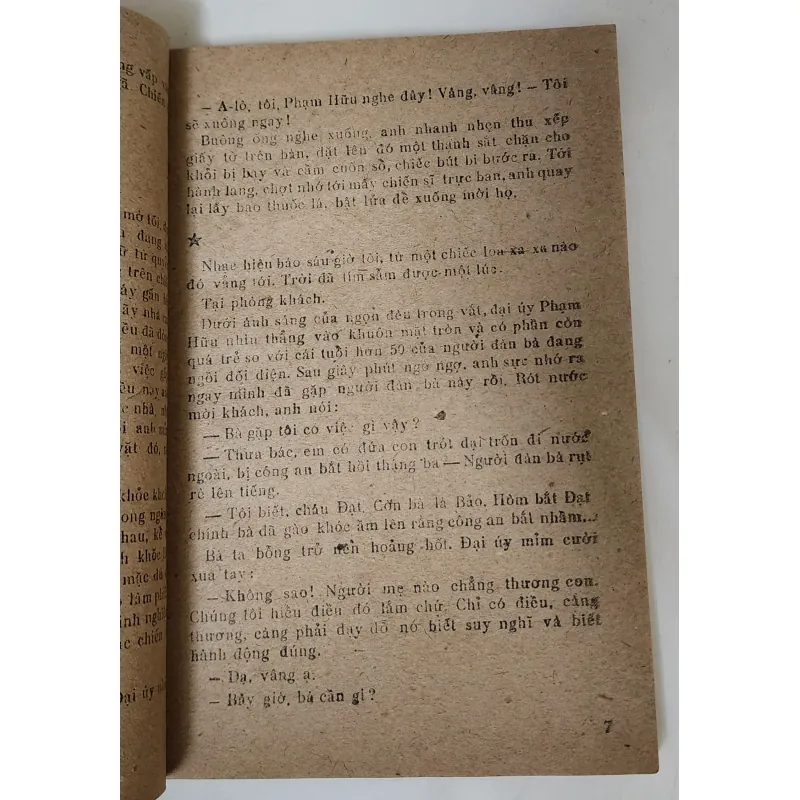 ng vấp v
ã Chiến
mở tôi, đ
a đang c
ữ tư qua
trên chi
áy gần
ãy nhà
êu đã đó
một ngô
việc gâ
ều nay an
ục nhà, n
ôi anh mì
vặt đó, n
khỏe khe
ong ngôn
hau, kẻ
h khốc l
mặc dù c
ó lắm ph
ính nghĩ
ác chiến
Đại úy nh
— A-lô, tôi, Phạm Hữu nghe đây! Vâng, vâng! — Tôi
sẽ xuống ngay!
Buông ống nghe xuống, anh nhanh nhẹn thu xếp
giấy tờ trên bàn, đặt lên đó một thanh sắt chặn cho
khỏi bị bay và cầm cuốn sổ, chiếc bút bi bước ra. Tới
hành lang, chợt nhớ tới mấy chiến sĩ trực ban, anh quay
lại lấy bao thuốc lá, bật lửa để xuống mời họ.
☆
Nhạc hiệu báo sáu giờ tối, từ một chiếc loa xa xa nào
đó vẳng tới. Trời đã tím sẫm được một lúc.
Tại phòng khách.
Dưới ánh sáng của ngọn đèn trong vắt, đại úy Phạm
Hữu nhìn thẳng vào khuôn mặt tròn và có phần còn
quá trẻ so với cái tuổi hơn 50 của người đàn bà đang
ngồi đối diện. Sau giây phút ngờ ngợ, anh sực nhớ ra
ngay mình đã gặp người đàn bà này rồi. Rót nước
mời khách, anh nói:
— Bà gặp tôi có việc gì vậy?
— Thưa bác, em có đứa con trót dại trốn đi nước
ngoài, bị công an bắt hồi tháng ba — Người đàn bà rụt
rè lên tiếng.
— Tôi biết, cháu Đạt. Còn bà là Bảo. Hôm bắt Đạt
chính bà đã gào khóc ầm lên rằng công an bắt nhầm...
Bà ta bỗng trở nên hoảng hốt. Đại úy mỉm cười
xua tay:
— Không sao! Người mẹ nào chẳng thương con.
Chúng tôi hiểu điều đó lắm chứ. Chỉ có điều, càng
thương, càng phải dạy dỗ nó biết suy nghĩ và biết
hành động đúng.
— Dạ, vâng ạ.
— Bây giờ, bà cần gì?
7